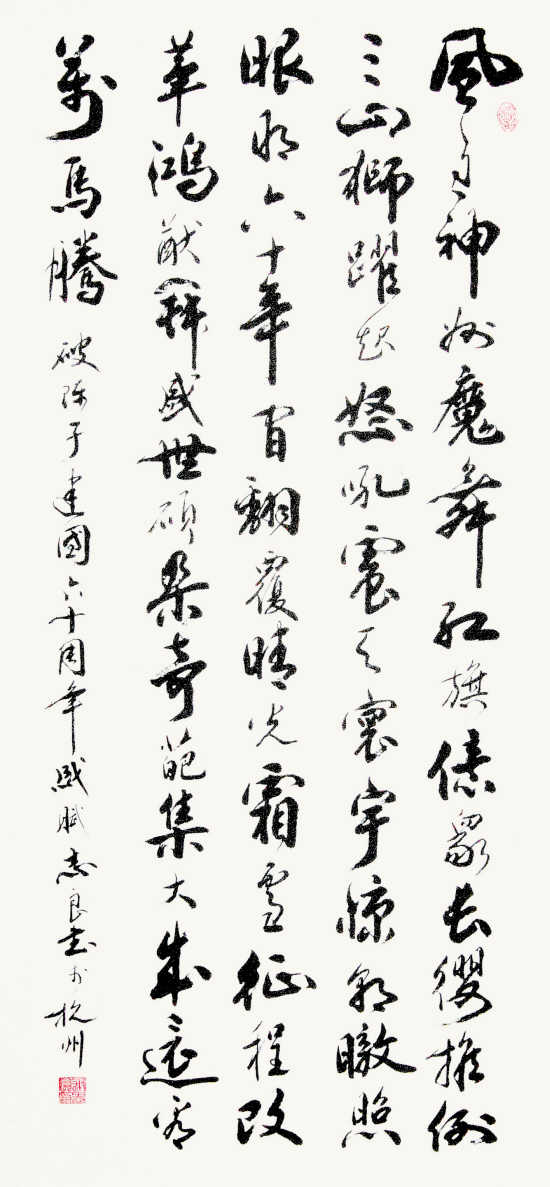 風神州魔舞紅旗億眾長纓推倒
三山獅躍起怒吼震天寰宇驚朝暾照
眼明六十年間翻覆晴光霜雪征程改
革鴻猷盛世碩果奇葩集大成還看
萬馬騰
破陣子建國六十周年感賦志良書於杭州